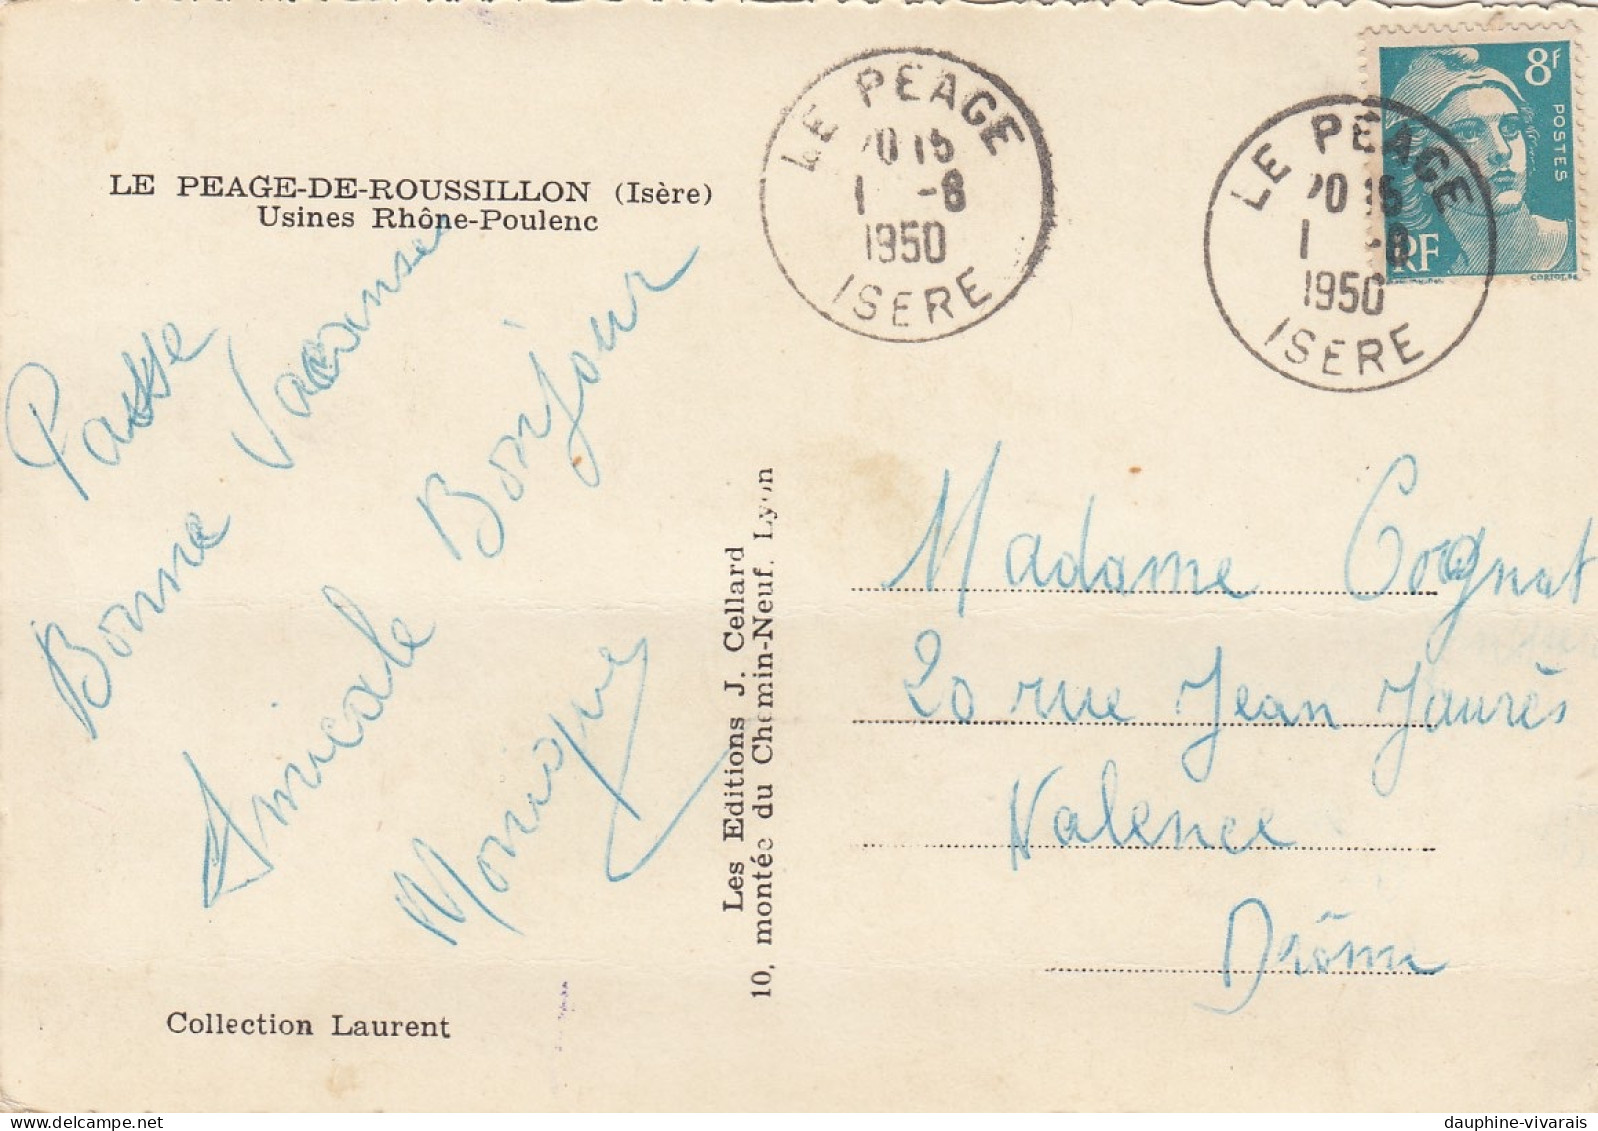 LE PEAGE-DE-ROUSSILLON (Isère)
Usines Rhône-Poulenc
Passe
Bonne Vacanse
Amicale Bonjour
Monique
Collection Laurent
Les Editions J. Cellard
10, montée du Chemin-Neuf. Lyon
LE PEAGE
20 15
1 -8
1950
ISERE
LE PEAGE
20 15
1 -8
1950
ISERE
8F
POSTES
RF
Madame Cognat
20 rue Jean Jaurès
Valence
Drôme
dauphine-vivarais